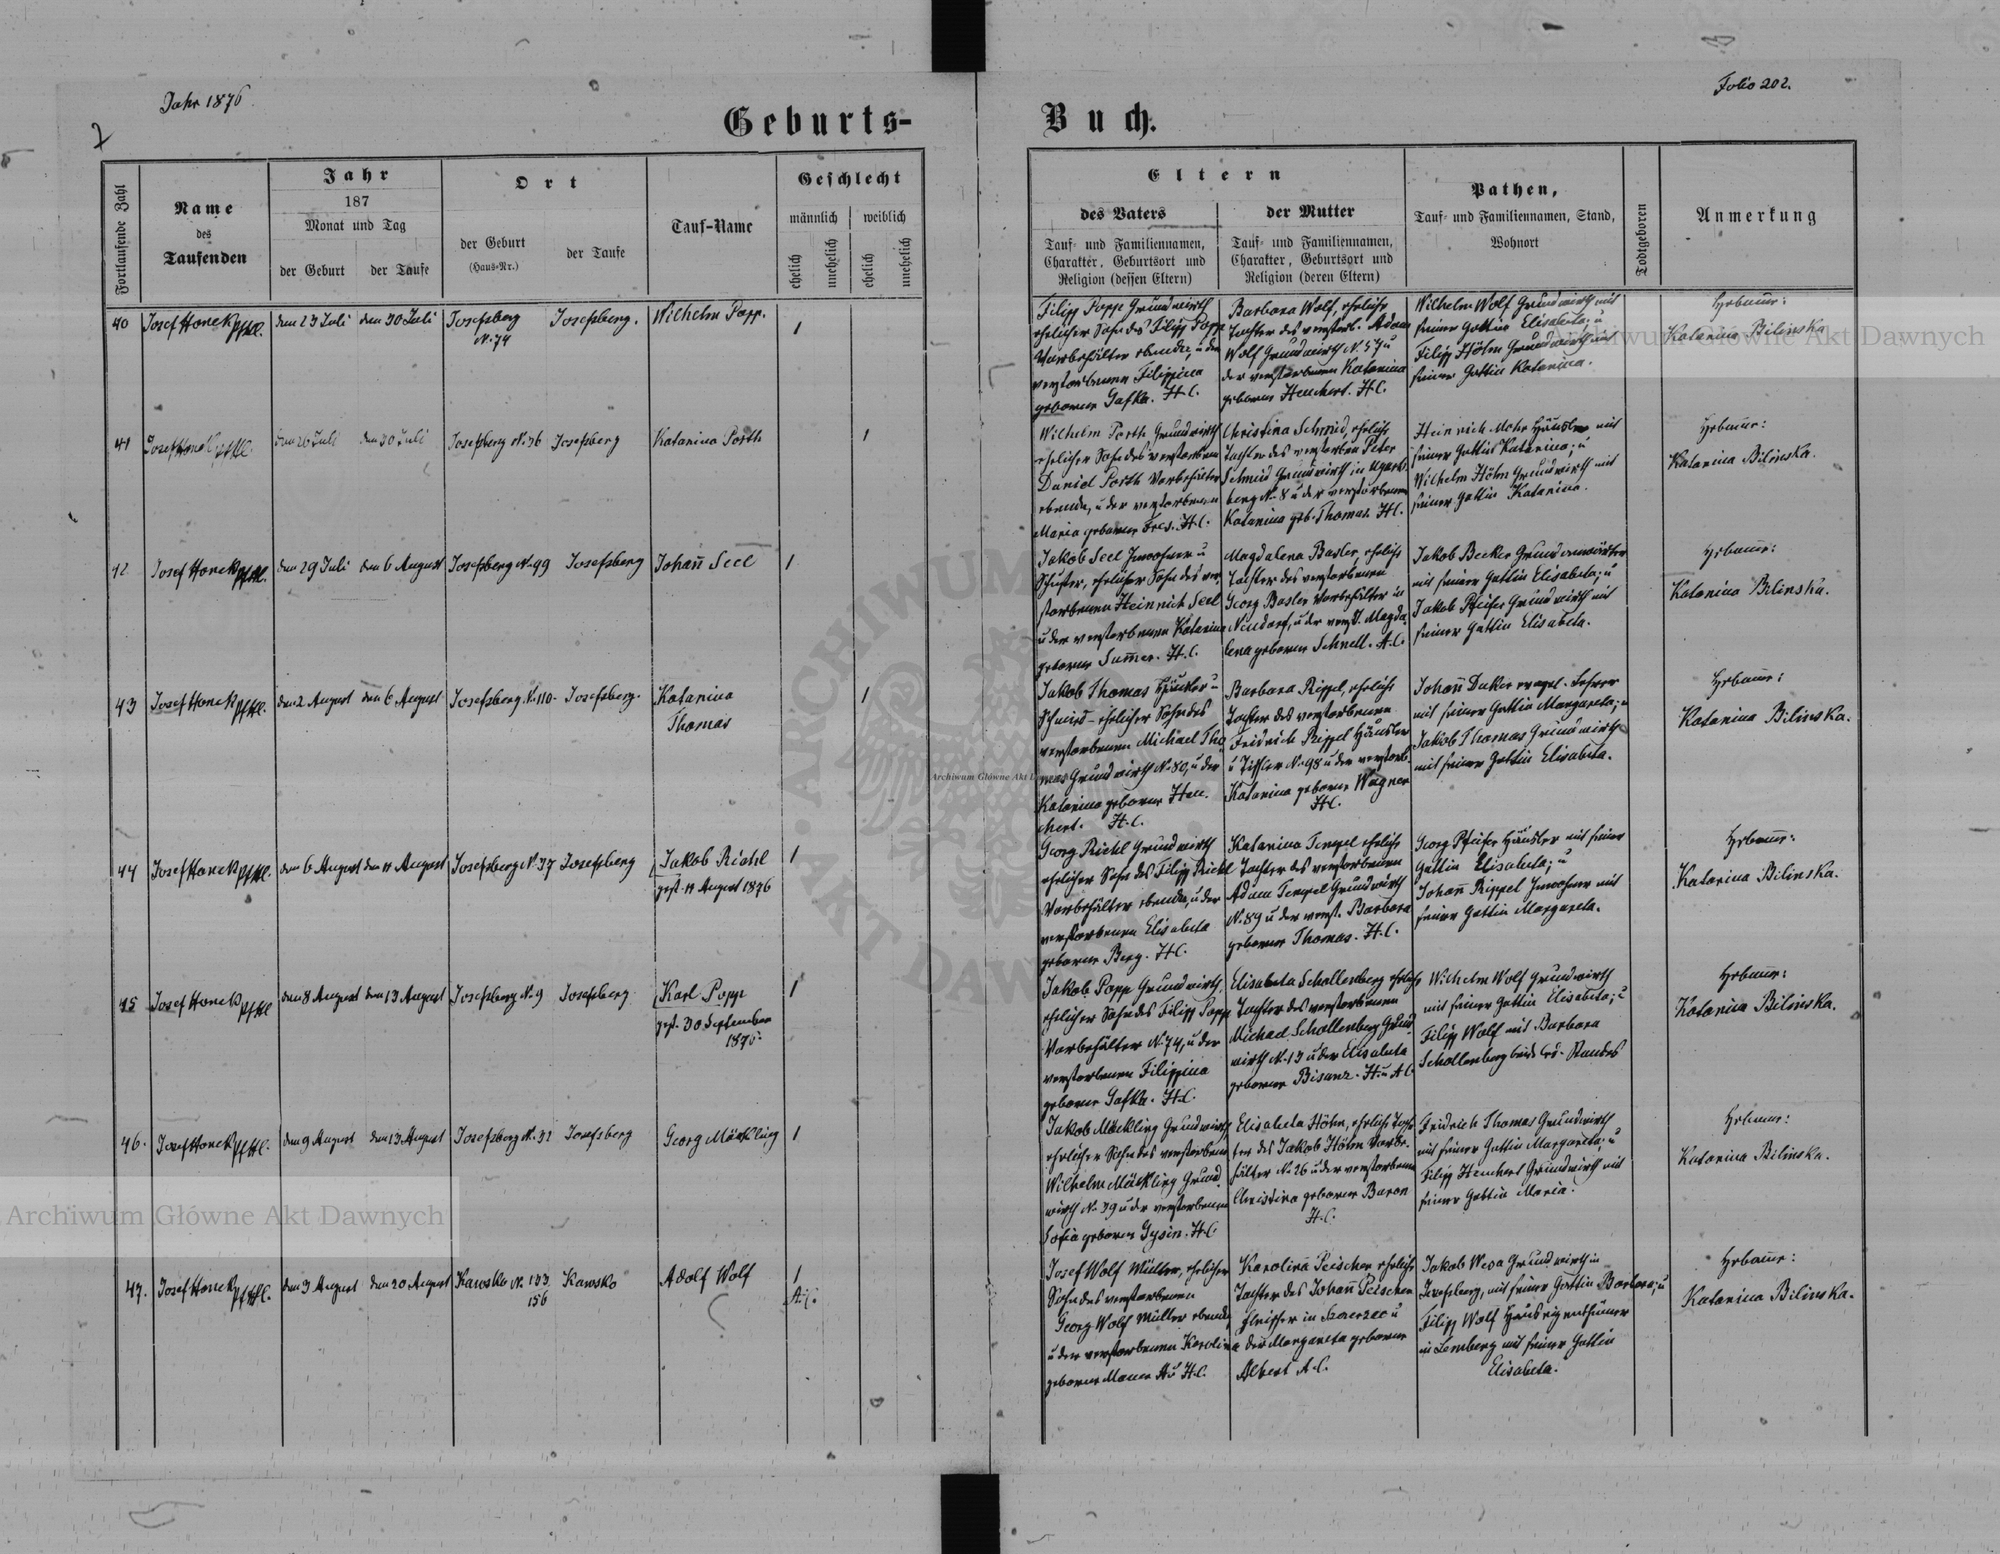 Jahr 1876
Folio 202.
Geburts-
Buch.
Fortlaufende Zahl
Name
des
Taufenden
Jahr
187
Monat und Tag
der Geburt
der Taufe
Ort
der Geburt
(Haus-Nr.)
der Taufe
Tauf-Name
Geschlecht
männlich
weiblich
ehelich
unehelich
ehelich
unehelich
Eltern
des Vaters
Tauf- und Familiennamen,
Charakter, Geburtsort und
Religion (dessen Eltern)
der Mutter
Tauf- und Familiennamen,
Charakter, Geburtsort und
Religion (deren Eltern)
Pathen,
Tauf- und Familiennamen, Stand,
Wohnort
Todtgeboren
Anmerkung
40 Josef Honek den 23 Juli den 30 Juli Josefsberg Josefsberg. Wilhelm Popp. 1
N. 74
Filipp Popp Grundwirth
ehelicher Sohn des Filipp Popp
Vorbehälter ebenda, u der
verstorbenen Filippina
geborene Gafka. H.C.
Barbara Wolf, eheliche
Tochter des verstorb. Adam
Wolf Grundwirth N. 57 u
der verstorbenen Katarina
geborene Heuchert. H.C.
Wilhelm Wolf Grundwirth mit
seiner Gattin Elisabeta; u
Filipp Höhn Grundwirth mit
seiner Gattin Katarina.
Hebame:
Katarina Bilinska
41 Josef Honek den 26 Juli den 30 Juli Josefsberg N. 36 Josefsberg Katarina Porth 1
Wilhelm Porth Grundwirth
ehelicher Sohn des verstorbenen
Daniel Porth Vorbehälter
ebenda, u der verstorbenen
Maria geborene H.C.
Christina Schmid, eheliche
Tochter des verstorben Peter
Schmid Grundwirth in Ugarts
berg N. 8 u der verstorbenen
Katarina geb. Thomas. H.C.
Heinrich Mohr Häusler mit
seiner Gattin Katarina; u
Wilhelm Höhn Grundwirth mit
seiner Gattin Katarina.
Hebame:
Katarina Bilinska.
42 Josef Honek den 29 Juli den 6 August Josefsberg N. 99 Josefsberg Johañ Seel 1
Jakob Seel Inwohner u
Schuster, ehelicher Sohn des ver
storbenen Heinrich Seel
u der verstorbenen Katarina
geborene Sum̄er. H.C.
Magdalena Basler, eheliche
Tochter des verstorbenen
Georg Basler Vorbehälter in
Neudorf, u der verst. Magda
lena geborene Schnell. A.C.
Jakob Becker Grundverwalter
mit seiner Gattin Elisabeta; u
Jakob Pfeifer Grundwirth mit
seiner Gattin Elisabeta.
Hebame:
Katarina Bilinska.
43 Josef Honek den 2 August den 6 August Josefsberg N. 110. Josefsberg. Katarina 1
Thomas
Jakob Thomas Häusler u
Schmied ehelicher Sohn des
verstorbenen Michael Tho
mas Grundwirth N. 80, u der
Katarina geborene Heu
chert. H.C.
Barbara Rippel, eheliche
Tochter des verstorbenen
Fridrich Rippel Häusler
u Tischler N. 98 u der verstorb.
Katarina geborene Wagner
H.C.
Johañ Duker evangel. Lehrer
mit seiner Gattin Margareta; u
Jakob Thomas Grundwirth
mit seiner Gattin Elisabeta.
Hebame:
Katarina Bilinska.
44 Josef Honek den 6 August den 11 August Josefsberg N. 37 Josefsberg Jakob Richl 1
gest. 14 August 1876
Georg Richl Grundwirth
ehelicher Sohn des Filipp Richl
Vorbehälter ebenda, u der
verstorbenen Elisabeta
geborene Berg. H.C.
Katarina Tempel eheliche
Tochter des verstorbenen
Adam Tempel Grundwirth
N. 89 u der verst. Barbara
geborene Thomas. H.C.
Georg Pfeifer Häusler mit seiner
Gattin Elisabeta; u
Johañ Rippel Inwohner mit
seiner Gattin Margareta.
Hebame:
Katarina Bilinska.
45 Josef Honek den 8 August den 13 August Josefsberg N. 9 Josefsberg Karl Popp 1
gest. 30 September
1876.
Jakob Popp Grundwirth,
ehelicher Sohn des Filipp Popp
Vorbehälter N. 74, u der
verstorbenen Filippina
geborene Gafka. H.C.
Elisabeta Schollenberg eheliche
Tochter des verstorbenen
Michael Schollenberg Grund
wirth N. 13 u der Elisabeta
geborene Bisanz. H. u A.C
Wilhelm Wolf Grundwirth
mit seiner Gattin Elisabeta; u
Filipp Wolf mit Barbara
Schollenberg beide led. Standes
Hebame:
Katarina Bilinska.
46. Josef Honek den 9 August den 13 August Josefsberg N. 31 Josefsberg Georg Möckling 1
Jakob Möckling Grundwirth,
ehelicher Sohn des verstorbenen
Wilhelm Möckling Grund
wirth N. 39 u der verstorbenen
Sofia geborene Gysin. H.C
Elisabeta Höhn, eheliche Toch
ter des Jakob Höhn Vorbe
hälter N. 26 u der verstorbenen
Christina geborene Baron
H.C.
Fridrich Thomas Grundwirth
mit seiner Gattin Margareta; u
Filipp Heuchert Grundwirth mit
seiner Gattin Maria.
Hebame:
Katarina Bilinska.
47. Josef Honek den 3 August den 20 August Kawsko N. 133 Kawsko Adolf Wolf 1
156
A.C.
Josef Wolf Müller, ehelicher
Sohn des verstorbenen
Georg Wolf Müller ebenda,
u der verstorbenen Karolina
geborene Mauer A u H.C.
Karolina Peischer eheliche
Tochter des Johañ Peischer
Fleischer in Szczerzec u
der Margareta geborene
Albert A.C.
Jakob Wesa Grundwirth in
Josefsberg, mit seiner Gattin Barbara; u
Filipp Wolf Hauseigenthümer
in Lemberg mit seiner Gattin
Elisabeta.
Hebame:
Katarina Bilinska.
Archiwum Główne Akt Dawnych
Archiwum Główne Akt Dawnych
ARCHIWUM
AKT DAWNYCH